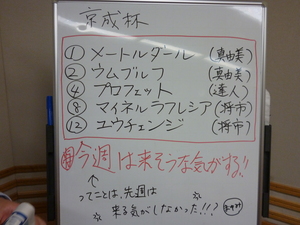 京成杯
① メートルダール (真由美)
② ウムブルフ (真由美)
④ プロフェット (達人)
⑧ マイネルラフレシア (将市)
⑫ ユウチェンジ (将市)
今週は来そうな気がする!!
ってことは、先週は
来る気がしなかった!!?